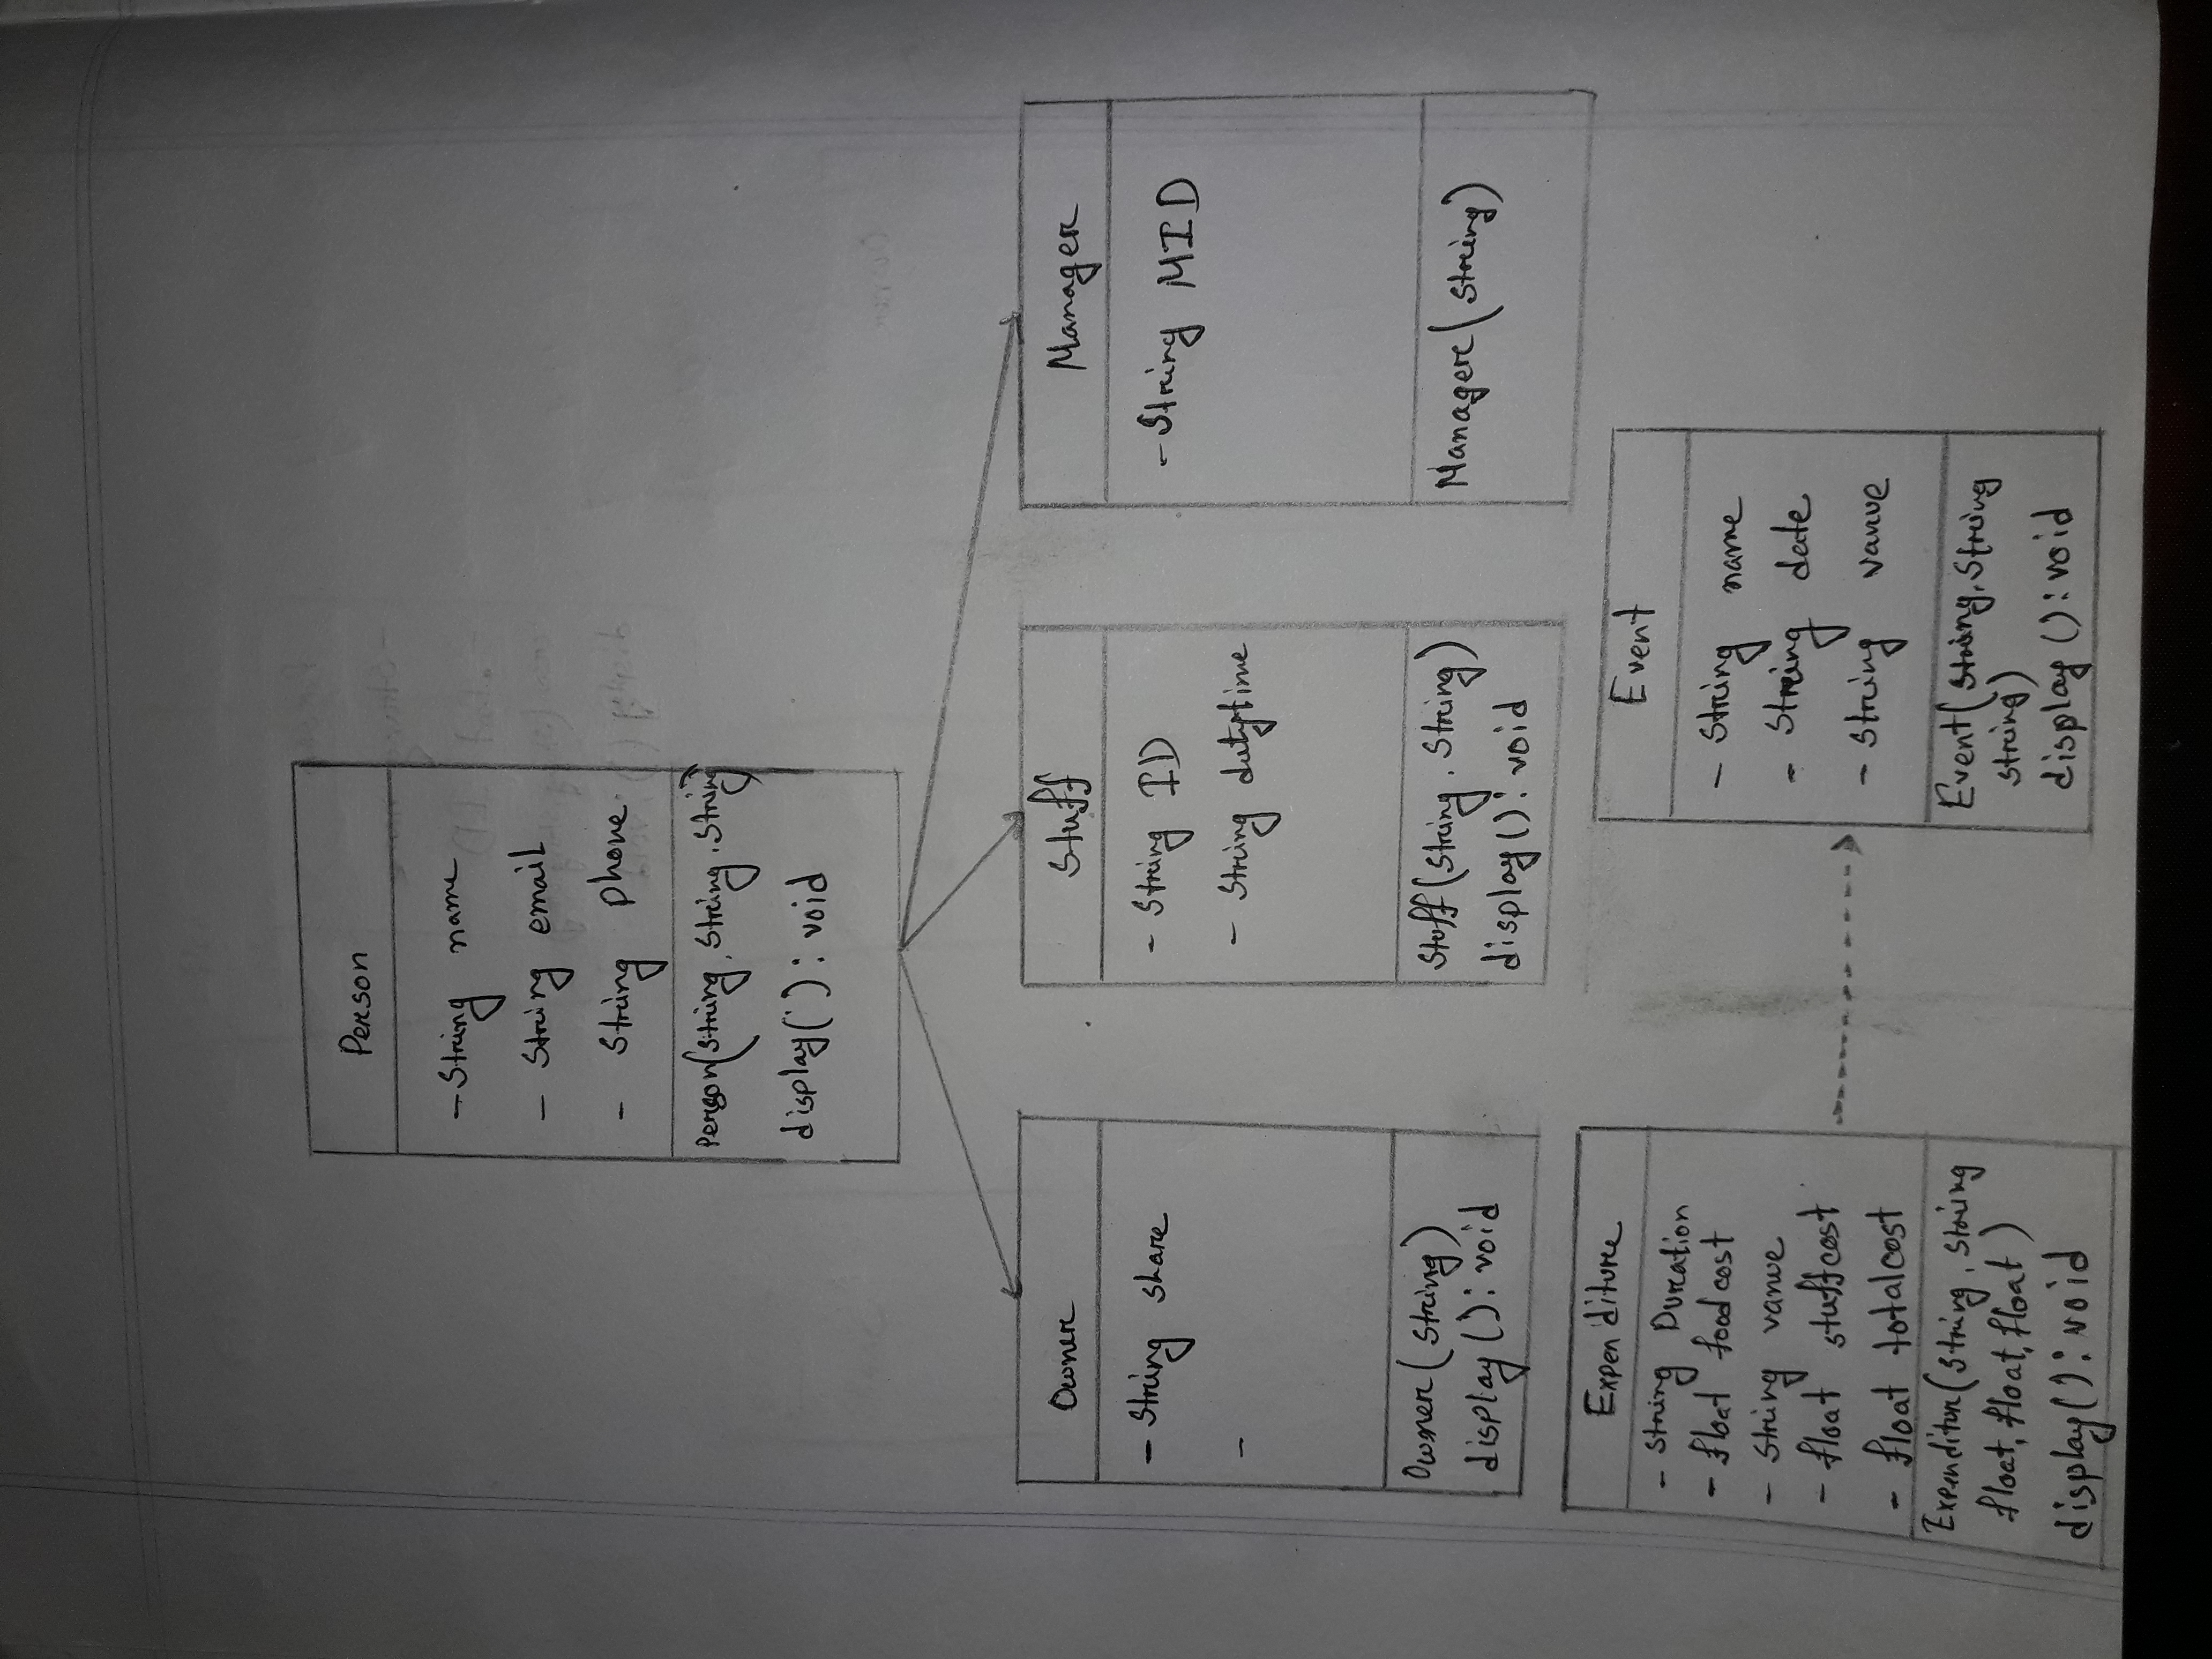 Person
- String name
- String email
- String phone
Person(String, String, String)
display() : void
Owner
- String share
-
Owner(String)
display() : void
Stuff
- String ID
- String dutytime
Stuff(String, String)
display() : void
Manager
- String MID
Manager(String)
Expenditure
- String Duration
- float foodcost
- String vanue
- float stuffcost
- float totalcost
Expenditur(String, String
float, float, float)
display() : void
Event
- String name
- String date
- String vanue
Event(String, String
String)
display() : void